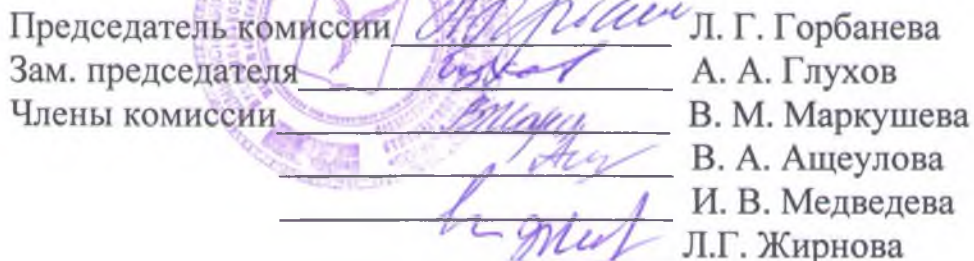 Председатель комиссии Л. Г. Горбанева
Зам. председателя А. А. Глухов
Члены комиссии В. М. Маркушева
В. А. Ащеулова
И. В. Медведева
Л.Г. Жирнова